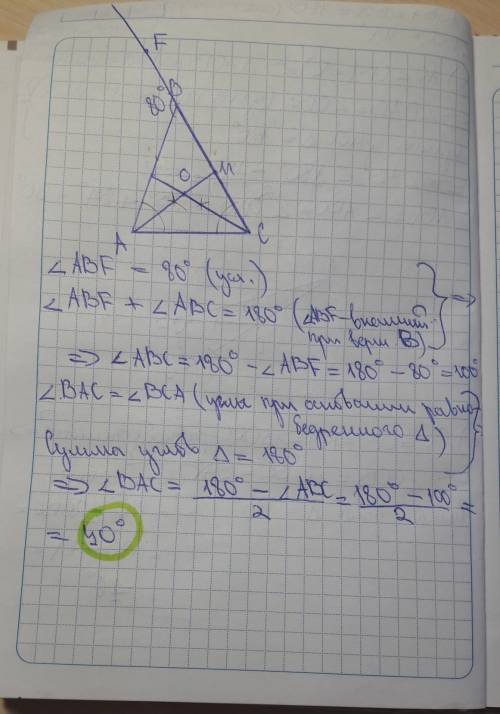 F
B
80°
O
M
A
C
∠ABF = 80° (усл.)
∠ABF + ∠ABC = 180° (∠ABF-внешний
при верш B)
=> ∠ABC = 180° - ∠ABF = 180° - 80° = 100°
∠BAC = ∠BCA (углы при основании равно-
бедренного Δ)
Сумма углов Δ = 180°
=> ∠BAC = (180° - ∠ABC)/2 = (180° - 100°)/2 =
= 40°